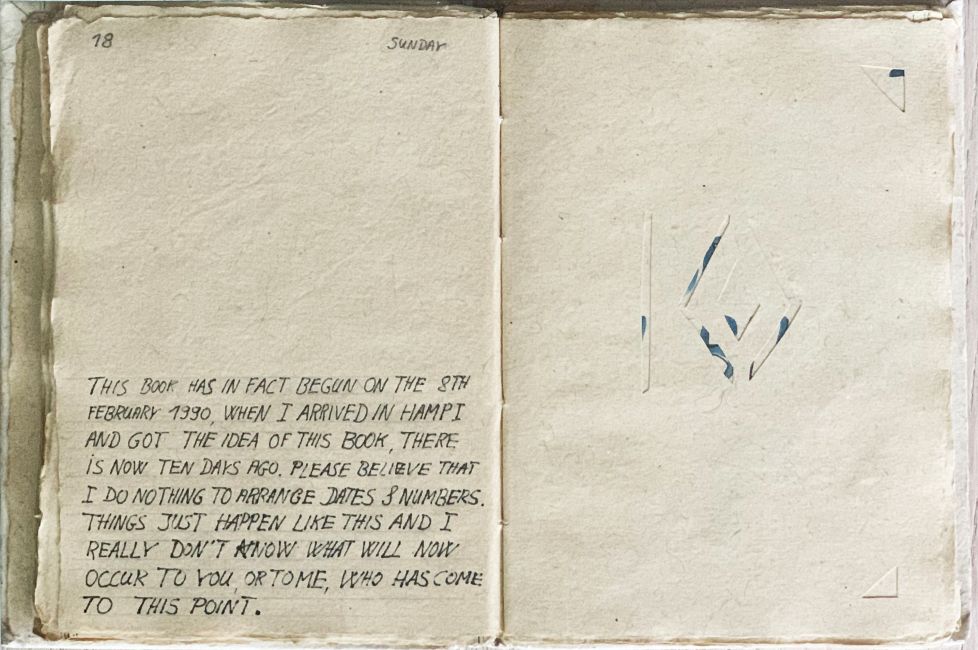 18 SUNDAY
THIS BOOK HAS IN FACT BEGUN ON THE 8TH
FEBRUARY 1990, WHEN I ARRIVED IN HAMPI
AND GOT THE IDEA OF THIS BOOK, THERE
IS NOW TEN DAYS AGO. PLEASE BELIEVE THAT
I DO NOTHING TO ARRANGE DATES & NUMBERS.
THINGS JUST HAPPEN LIKE THIS AND I
REALLY DON'T KNOW WHAT WILL NOW
OCCUR TO YOU, OR TO ME, WHO HAS COME
TO THIS POINT.